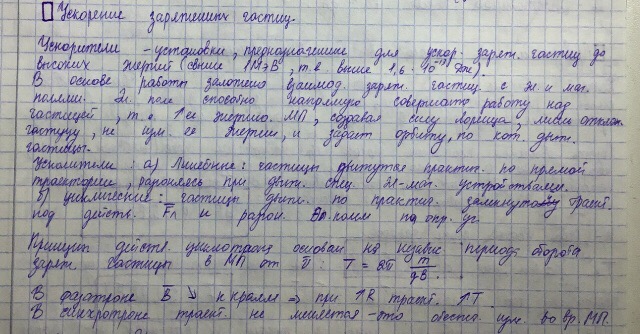 Ускорение заряженных частиц.
Ускорители - установки, предназначенные для ускор. заряж. частиц до
высоких энергий (свыше 1МэВ, т.е выше 1,6 · 10⁻¹³ Дж).
В основе работы заложено взаимод. заряж. частиц с эл и маг.
полями. Эл. поле способно напрямую совершать работу над
частицей, т.е ↑ ее энергию. МП, создавая силу Лоренца, лишь отклон.
частицу, не изм. ее энергии, и задает орбиту, по кот. движ.
частицы.
Усколители: а) Линейные: частицы движутся практич. по прямой
траектории, разгоняясь при движ. спец. эл-маг. устройствами.
б) циклические: частицы движ. по практич. замкнутой траект.
под действ. Fл и разгон. полем по опр. уг.
Принцип действ. циклотрона основан на независ. периода оборота
заряж частицы в МП от v̅. T = 2π m/qB.
В фазатроне B̅ ↘ к краям => при ↑R траект. ↑T.
В синхротроне траект. не меняется - это обеспеч. изм. во вр. МП.